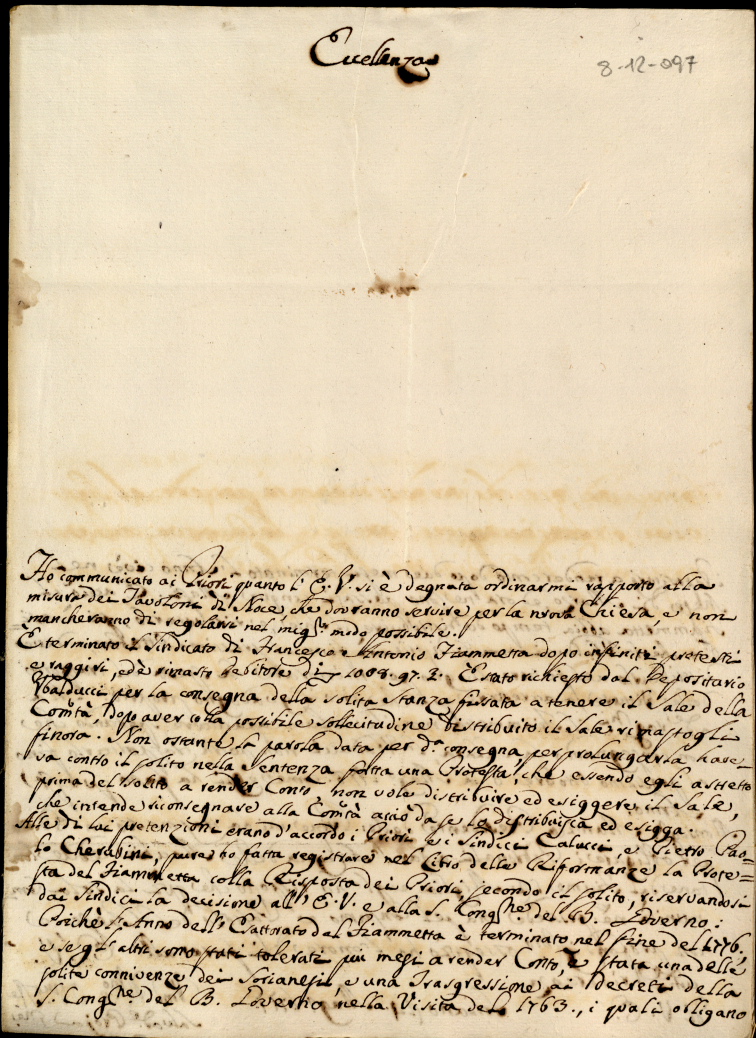 Eccellenza
8-12-097
Ho communicato ai Priori quanto l'E.V. si è degnata ordinarmi rapporto alla
misura dei Tavoloni di Noce, che dovranno servire per la nuova Chiesa, e non
mancheranno di regolarsi nel migre modo possibile.
È terminato il Sindicato di Francesco e Antonio Fiammetta dopo infiniti pretesti
e raggiri, ed è rimasto debitore di 1008.97.2. È stato richiesto dal Depositario
Ubalducci per la consegna della solita Stanza fissata a tenere il Sale della
Comtà, dopo aver colla possibile sollecitudine distribuito il Sale rimastogli
finora. Non ostante la parola data per da consegna, per prolungarla have-
va contro il solito nella Sentenza fatta una Protesta, che essendo egli astretto
prima del solito a render Conto, non vole distribuire ed esiggere il Sale,
che intende riconsegnare alla Comtà acciò da se lo distribuisca ed esigga.
Alle di lui pretenzioni erano d'accordo i Priori e i Sindici Calucci, e Pietro Pao=
lo Cherubini, pure ho fatta registrare nel Libro delle Riformanze la Prote=
sta del Fiammetta colla Risposta dei Priori, secondo il solito, riservandosi
dai Sindici la decisione all'E.V. e alla S. Congne del B. Governo.
Poichè l'Anno dell'Esattorato del Fiammetta è terminato nel fine del 1776,
e se gl'altri sono stati tolerati più mesi a render Conto, è stata una delle
solite connivenze dei Sorianesi, e una Trasgressione ai decreti della
S. Congne del B. Governo nella Visita del 1763., i quali obligano